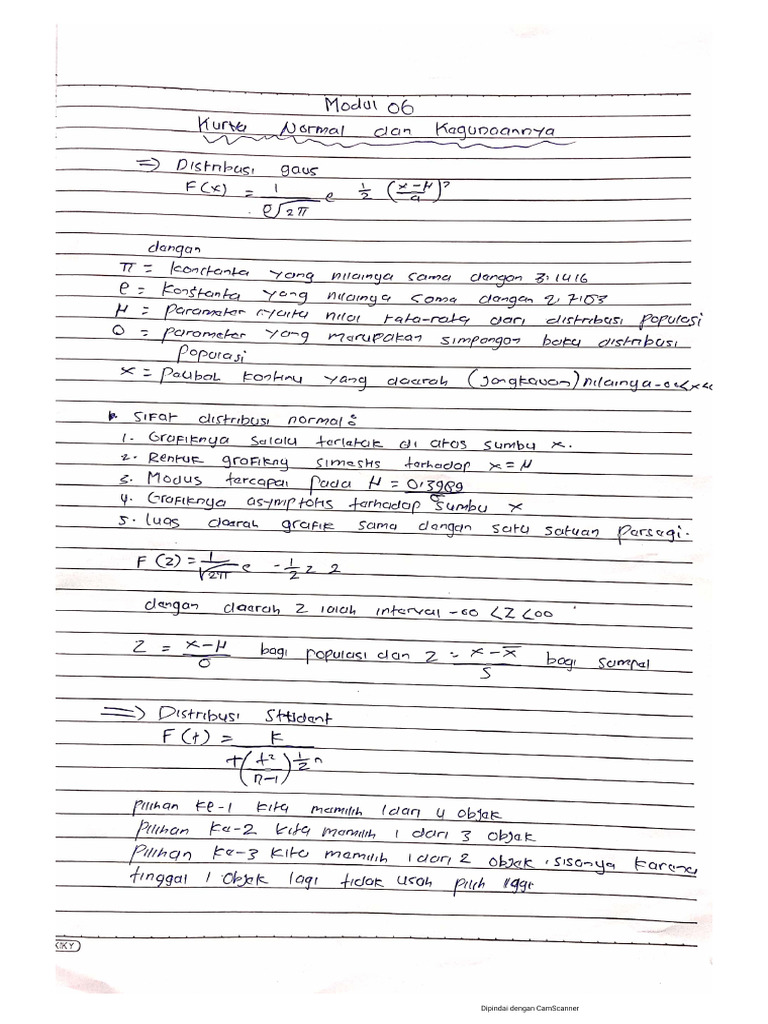 Modul 06
Kurva Normal dan Kagunaannya
=> Distribusi gaus
F(x) = 1/(e√2π) e 1/2 ((x-μ)/a)²
dangan
π = konstanta yang nilainya sama dangan 3.1416
e = konstanta yang nilainya sama dangan 2,7183
μ = Paramater yaitu nilai rata-rata dari distribusi populasi
0 = parameter yang marupakan simpangan baku distribusi
populasi
x = Paubah kontinu yang daarah (jangkauan) nilainya -∞<x<∞
Sifat distribusi normal:
1. Grafiknya salalu tarlatak di atas sumbu x.
2. Bentuk grafikny simestis tarhadap x=μ
3. Modus tarcapai pada μ = 0,3989/σ
4. Grafiknya asymptotis tarhadap sumbu x
5. luas daarah grafik sama dangan satu satuan parsagi.
F(z) = 1/√2π e -1/2 z 2
dangan daarah z ialah interval -∞ < Z < ∞
Z = (x-μ)/0 bagi populasi dan Z = (x-x̄)/S bagi sampal
=> Distribusi Sttident
F(t) = K/(+(t²/(n-1)) 1/2 n)
pilihan ke-1 kita mamilih 1 dari 4 objak
pilihan ka-2 kita mamilih 1 dari 3 objak
pilihan ka-3 kita mamilih 1 dari 2 objak, sisanya karena
tinggal 1 objak lagi tidak usah pilih
KIKY
Dipindai dengan CamScanner